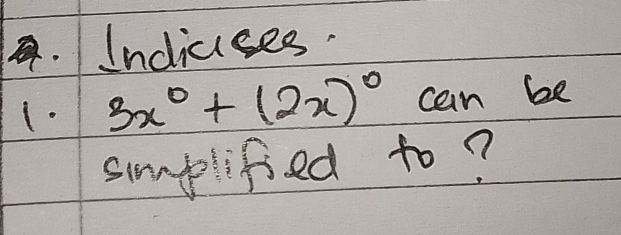 Q. Indicises.
1. 3x⁰ + (2x)⁰ can be
simplified to?